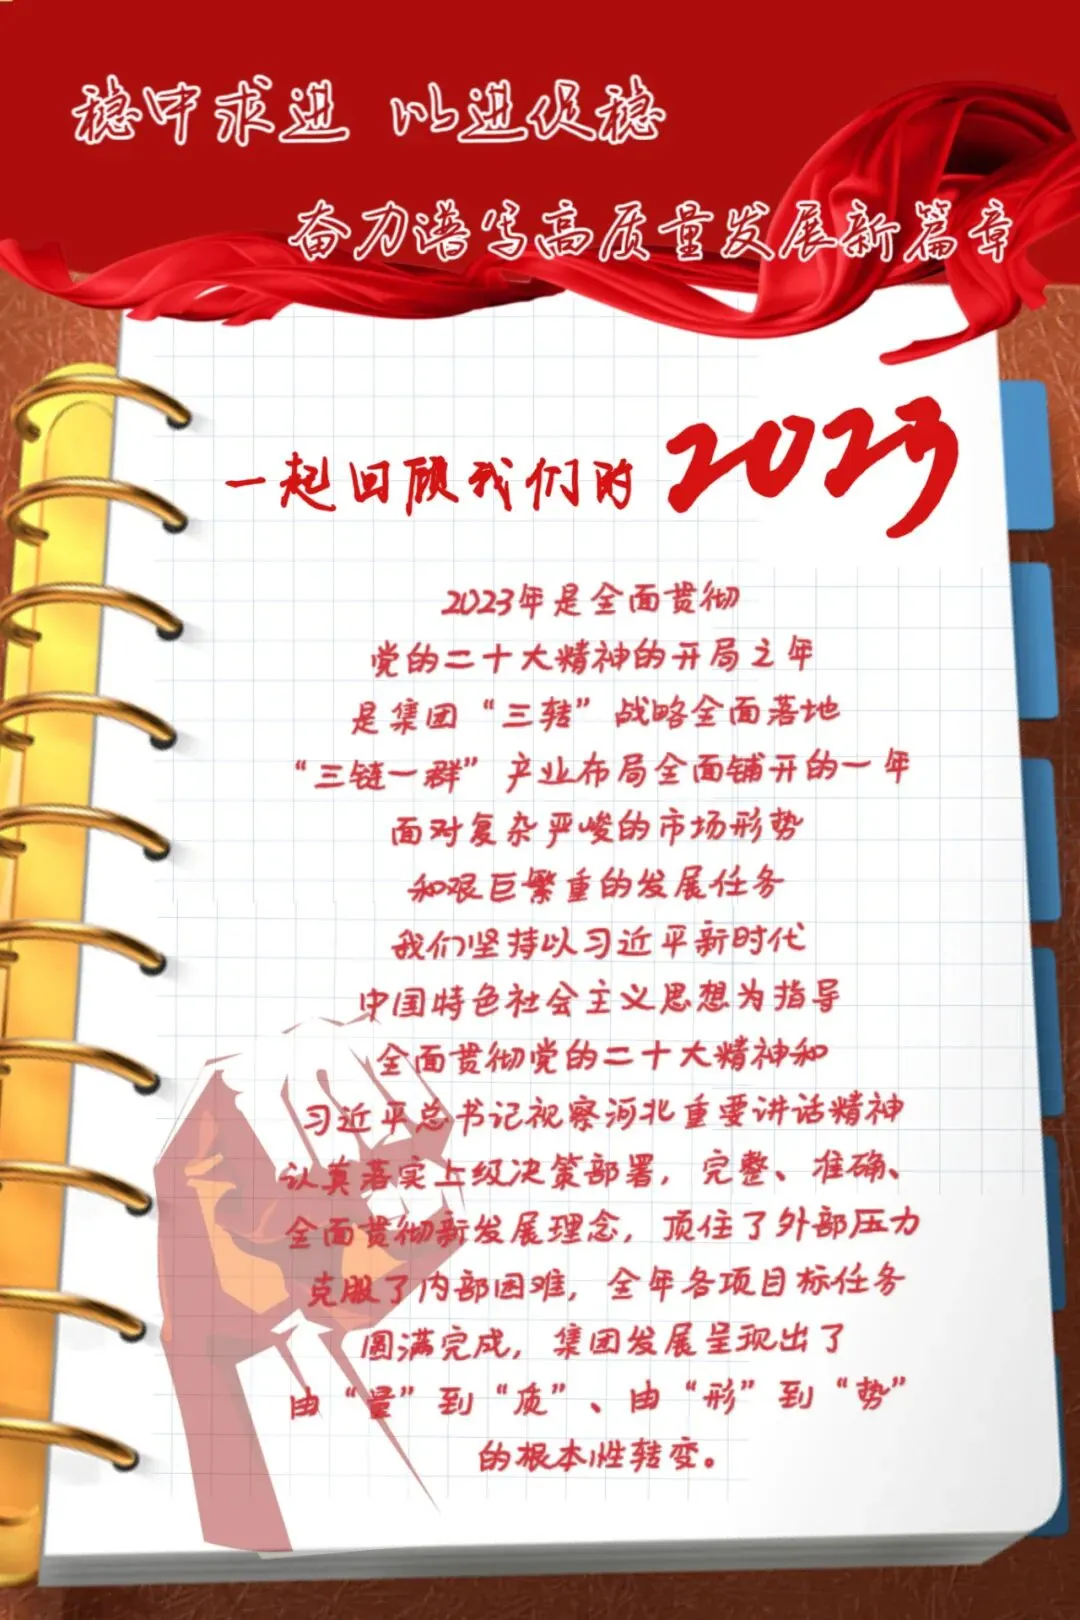 稳中求进 以进促稳
奋力谱写高质量发展新篇章
一起回顾我们的2023
2023年是全面贯彻
党的二十大精神的开局之年
是集团“三转”战略全面落地
“三链一群”产业布局全面铺开的一年
面对复杂严峻的市场形势
和艰巨繁重的发展任务
我们坚持以习近平新时代
中国特色社会主义思想为指导
全面贯彻党的二十大精神和
习近平总书记视察河北重要讲话精神
认真落实上级决策部署，完整、准确、
全面贯彻新发展理念，顶住了外部压力
克服了内部困难，全年各项目标任务
圆满完成，集团发展呈现出了
由“量”到“质”、由“形”到“势”
的根本性转变。